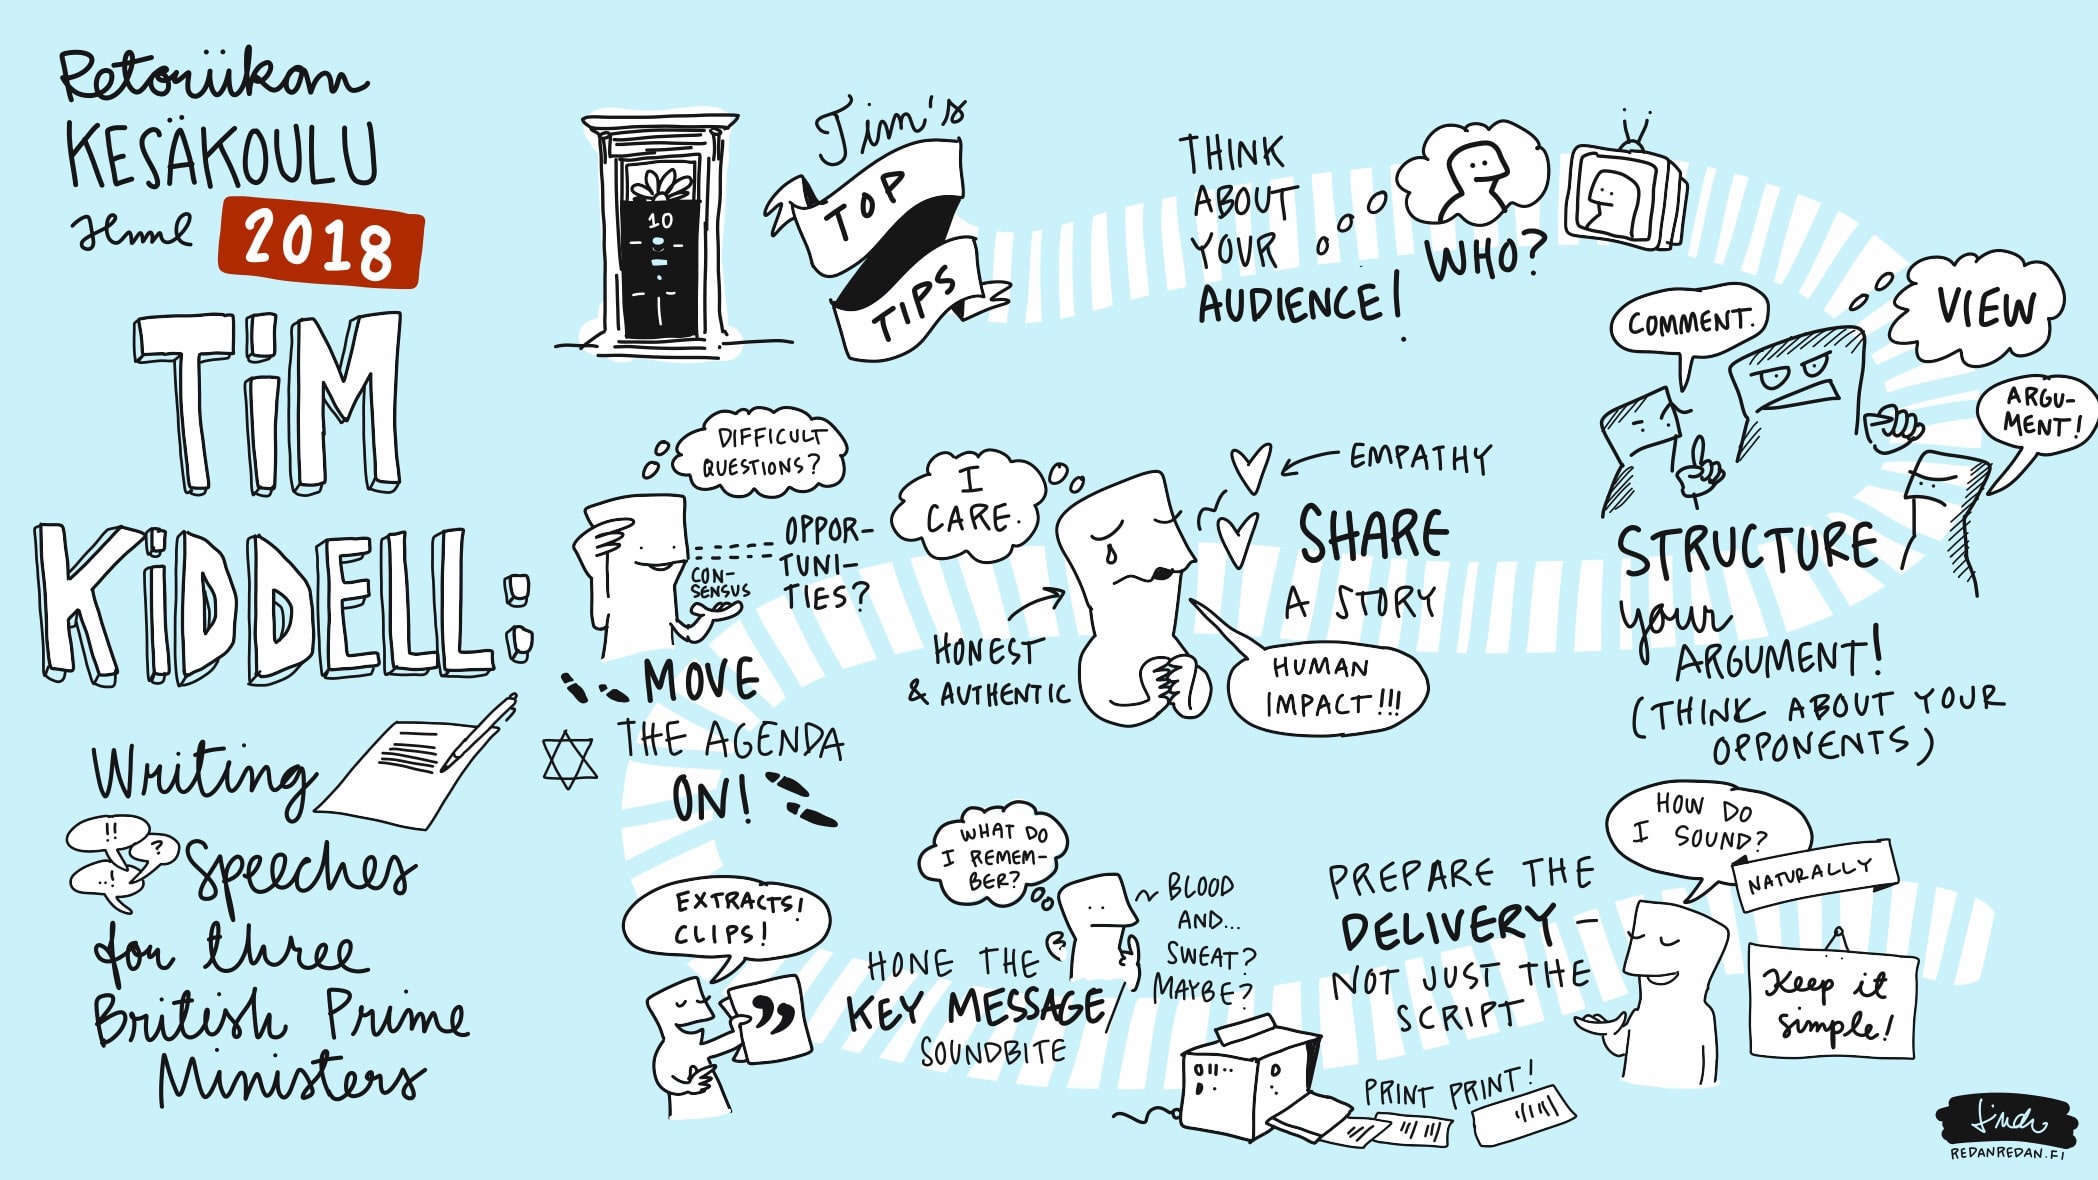 Retoriikan
KESÄKOULU
2018
TiM
KiDDELL:
Writing
!!
?
Speeches
for three
British Prime
Ministers
10
Tim's
TOP
TIPS
THINK
ABOUT
YOUR
AUDIENCE!
WHO?
COMMENT.
VIEW
ARGU-
MENT!
STRUCTURE
your
ARGUMENT!
(THINK ABOUT YOUR
OPPONENTS)
EMPATHY
SHARE
A STORY
I
CARE.
HONEST
& AUTHENTIC
HUMAN
IMPACT!!!
DIFFICULT
QUESTIONS?
OPPOR-
TUNI-
TIES?
CON-
SENSUS
MOVE
THE AGENDA
ON!
EXTRACTS!
CLIPS!
WHAT DO
I REMEM-
BER?
~ BLOOD
AND...
SWEAT?
MAYBE?
HONE THE
KEY MESSAGE/
SOUNDBITE
PREPARE THE
DELIVERY –
NOT JUST THE
SCRIPT
PRINT PRINT!
HOW DO
I SOUND?
NATURALLY
Keep it
simple!
REDANREDAN.FI